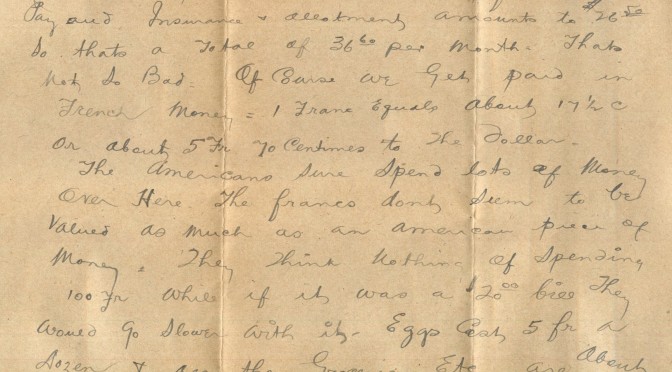 Pay and Insurance & allotment amounts to $26 50
So thats a Total of 36 60 per month. Thats
not so Bad. Of Course we Get paid in
French Money = 1 Franc Equals about 17 1/2 c
Or about 5 Fr 70 Centimes to The Dollar.
The Americans sure spend lots of Money
Over Here. The francs dont seem to be
Valued as much as an american piece of
Money. They Think Nothing of Spending
100 Fr while if its was a $20 00 bill They
would go slower with it. Eggs Cost 5 fr a
Dozen & are the Etc are about